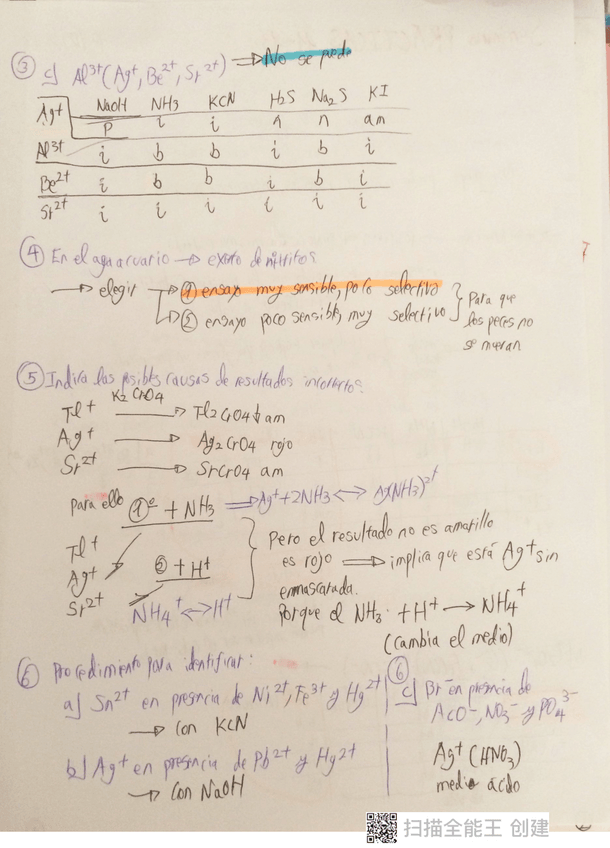 ③ c) Al³⁺ (Ag⁺, Be²⁺, Sr²⁺) ⇒ No se puede
Ag⁺ NaOH NH₃ KCN H₂S Na₂S KI
P i i n n am
Al³⁺ i b b i b i
Be²⁺ i b b i b i
Sr²⁺ i i i i i i
④ En el agua acuario → exceso de nitritos
→ elegir → ① ensayo muy sensible, poco selectivo
→ ② ensayo poco sensible, muy selectivo
Para que
los peces no
se mueran
⑤ Indira las posibles causas de resultados incorrectos?
K₂CrO₄
Tl⁺ → Tl₂CrO₄↓ am
Ag⁺ → Ag₂CrO₄ rojo
Sr²⁺ → SrCrO₄ am
Para ello ①º + NH₃ ⇒ Ag⁺ + 2NH₃ ↔ Ag(NH₃)²⁺
Tl⁺
Ag⁺
Sr²⁺
② + H⁺
NH₄⁺ ↔ H⁺
Pero el resultado no es amarillo
es rojo ⇒ implica que está Ag⁺ sin
enmascarada.
Porque el NH₃ + H⁺ → NH₄⁺
(cambia el medio)
⑥ Procedimiento para identificar:
a) Sn²⁺ en presencia de Ni²⁺, Fe³⁺ y Hg²⁺
→ Con KCN
b) Ag⁺ en presencia de Pb²⁺ y Hg²⁺
→ Con NaOH
⑥
c) Br⁻ en presencia de
AcO⁻, NO₃⁻ y PO₄³⁻
Ag⁺ (HNO₃)
medio ácido
扫描全能王 创建